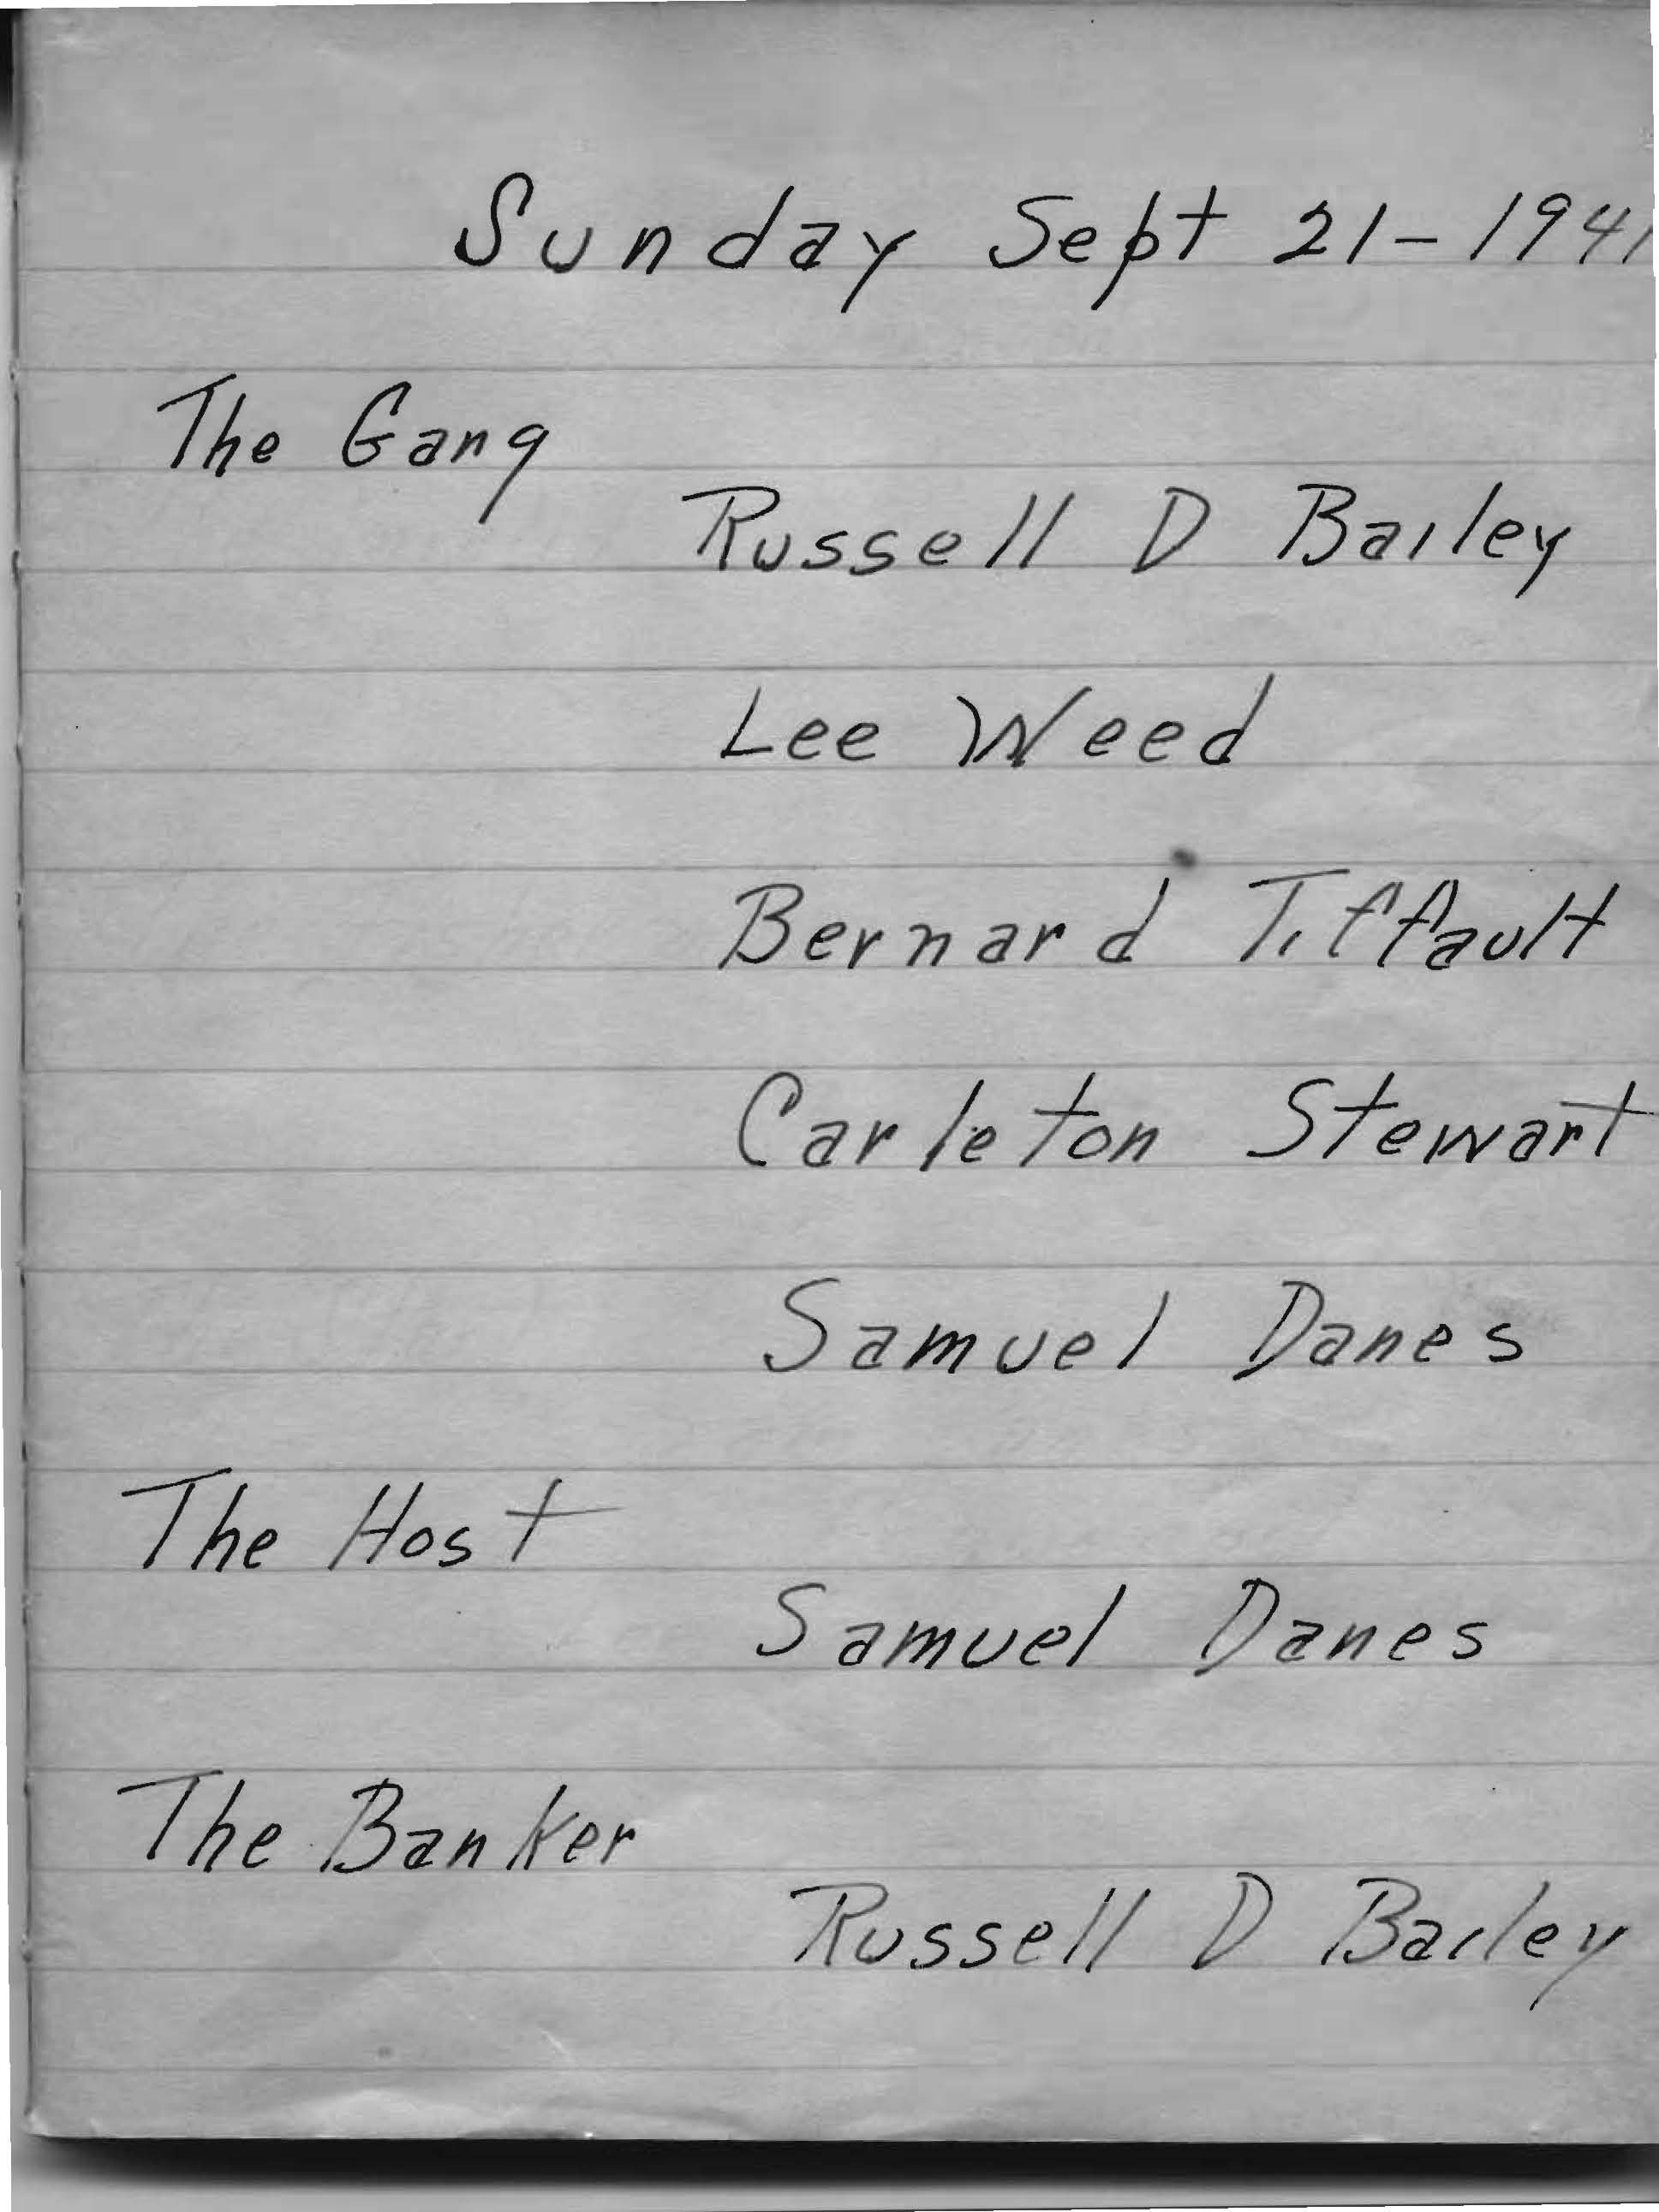 Sunday Sept 21-1941
The Gang
Russell D Bailey
Lee Weed
Bernard Tiffault
Carleton Stewart
Samuel Danes
The Host
Samuel Danes
The Banker
Russell D Bailey